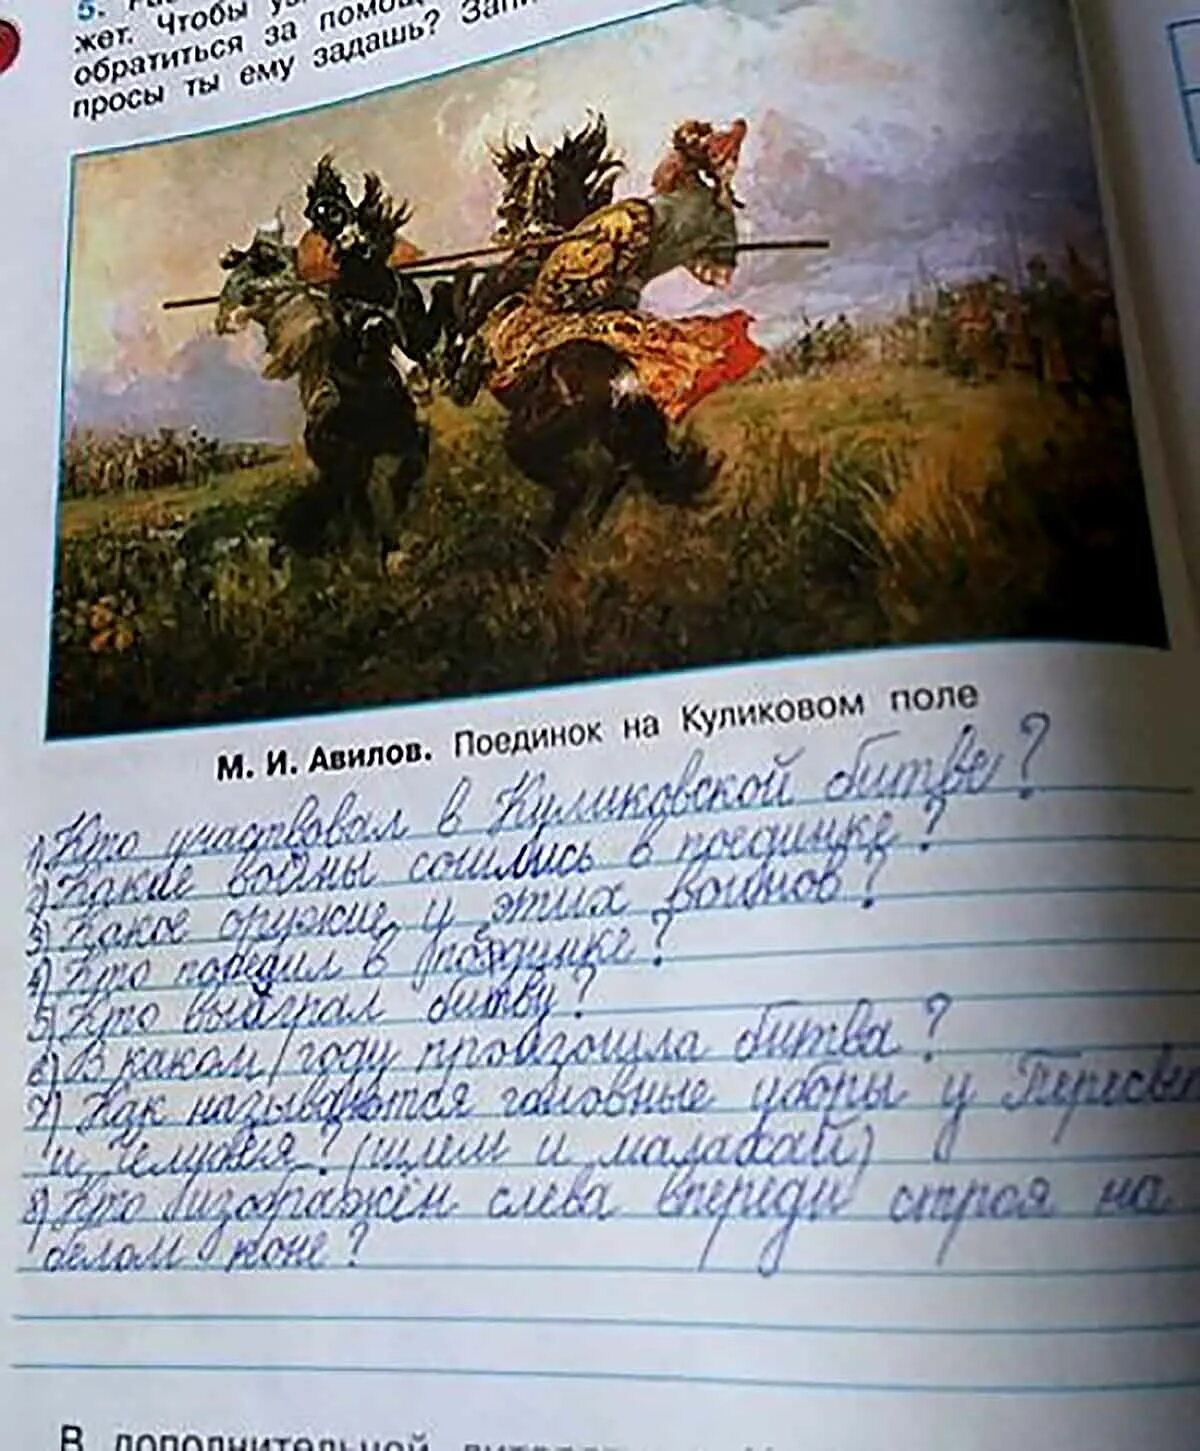 5.
жет. Чтобы
обратиться за помощ
просы ты ему задашь?
М. И. Авилов. Поединок на Куликовом поле
1) Кто участвовал в Куликовской битве?
2) Какие войны сошлись в поединке?
3) Какое оружие у этих воинов?
4) Кто победил в поединке?
5) Кто выиграл битву?
6) В каком году произошла битва?
7) Как называются головные уборы у Пересвет
и Челубея? (шлем и малахай)
8) Кто изображён слева впереди строя на
белом коне?
В дополнительной